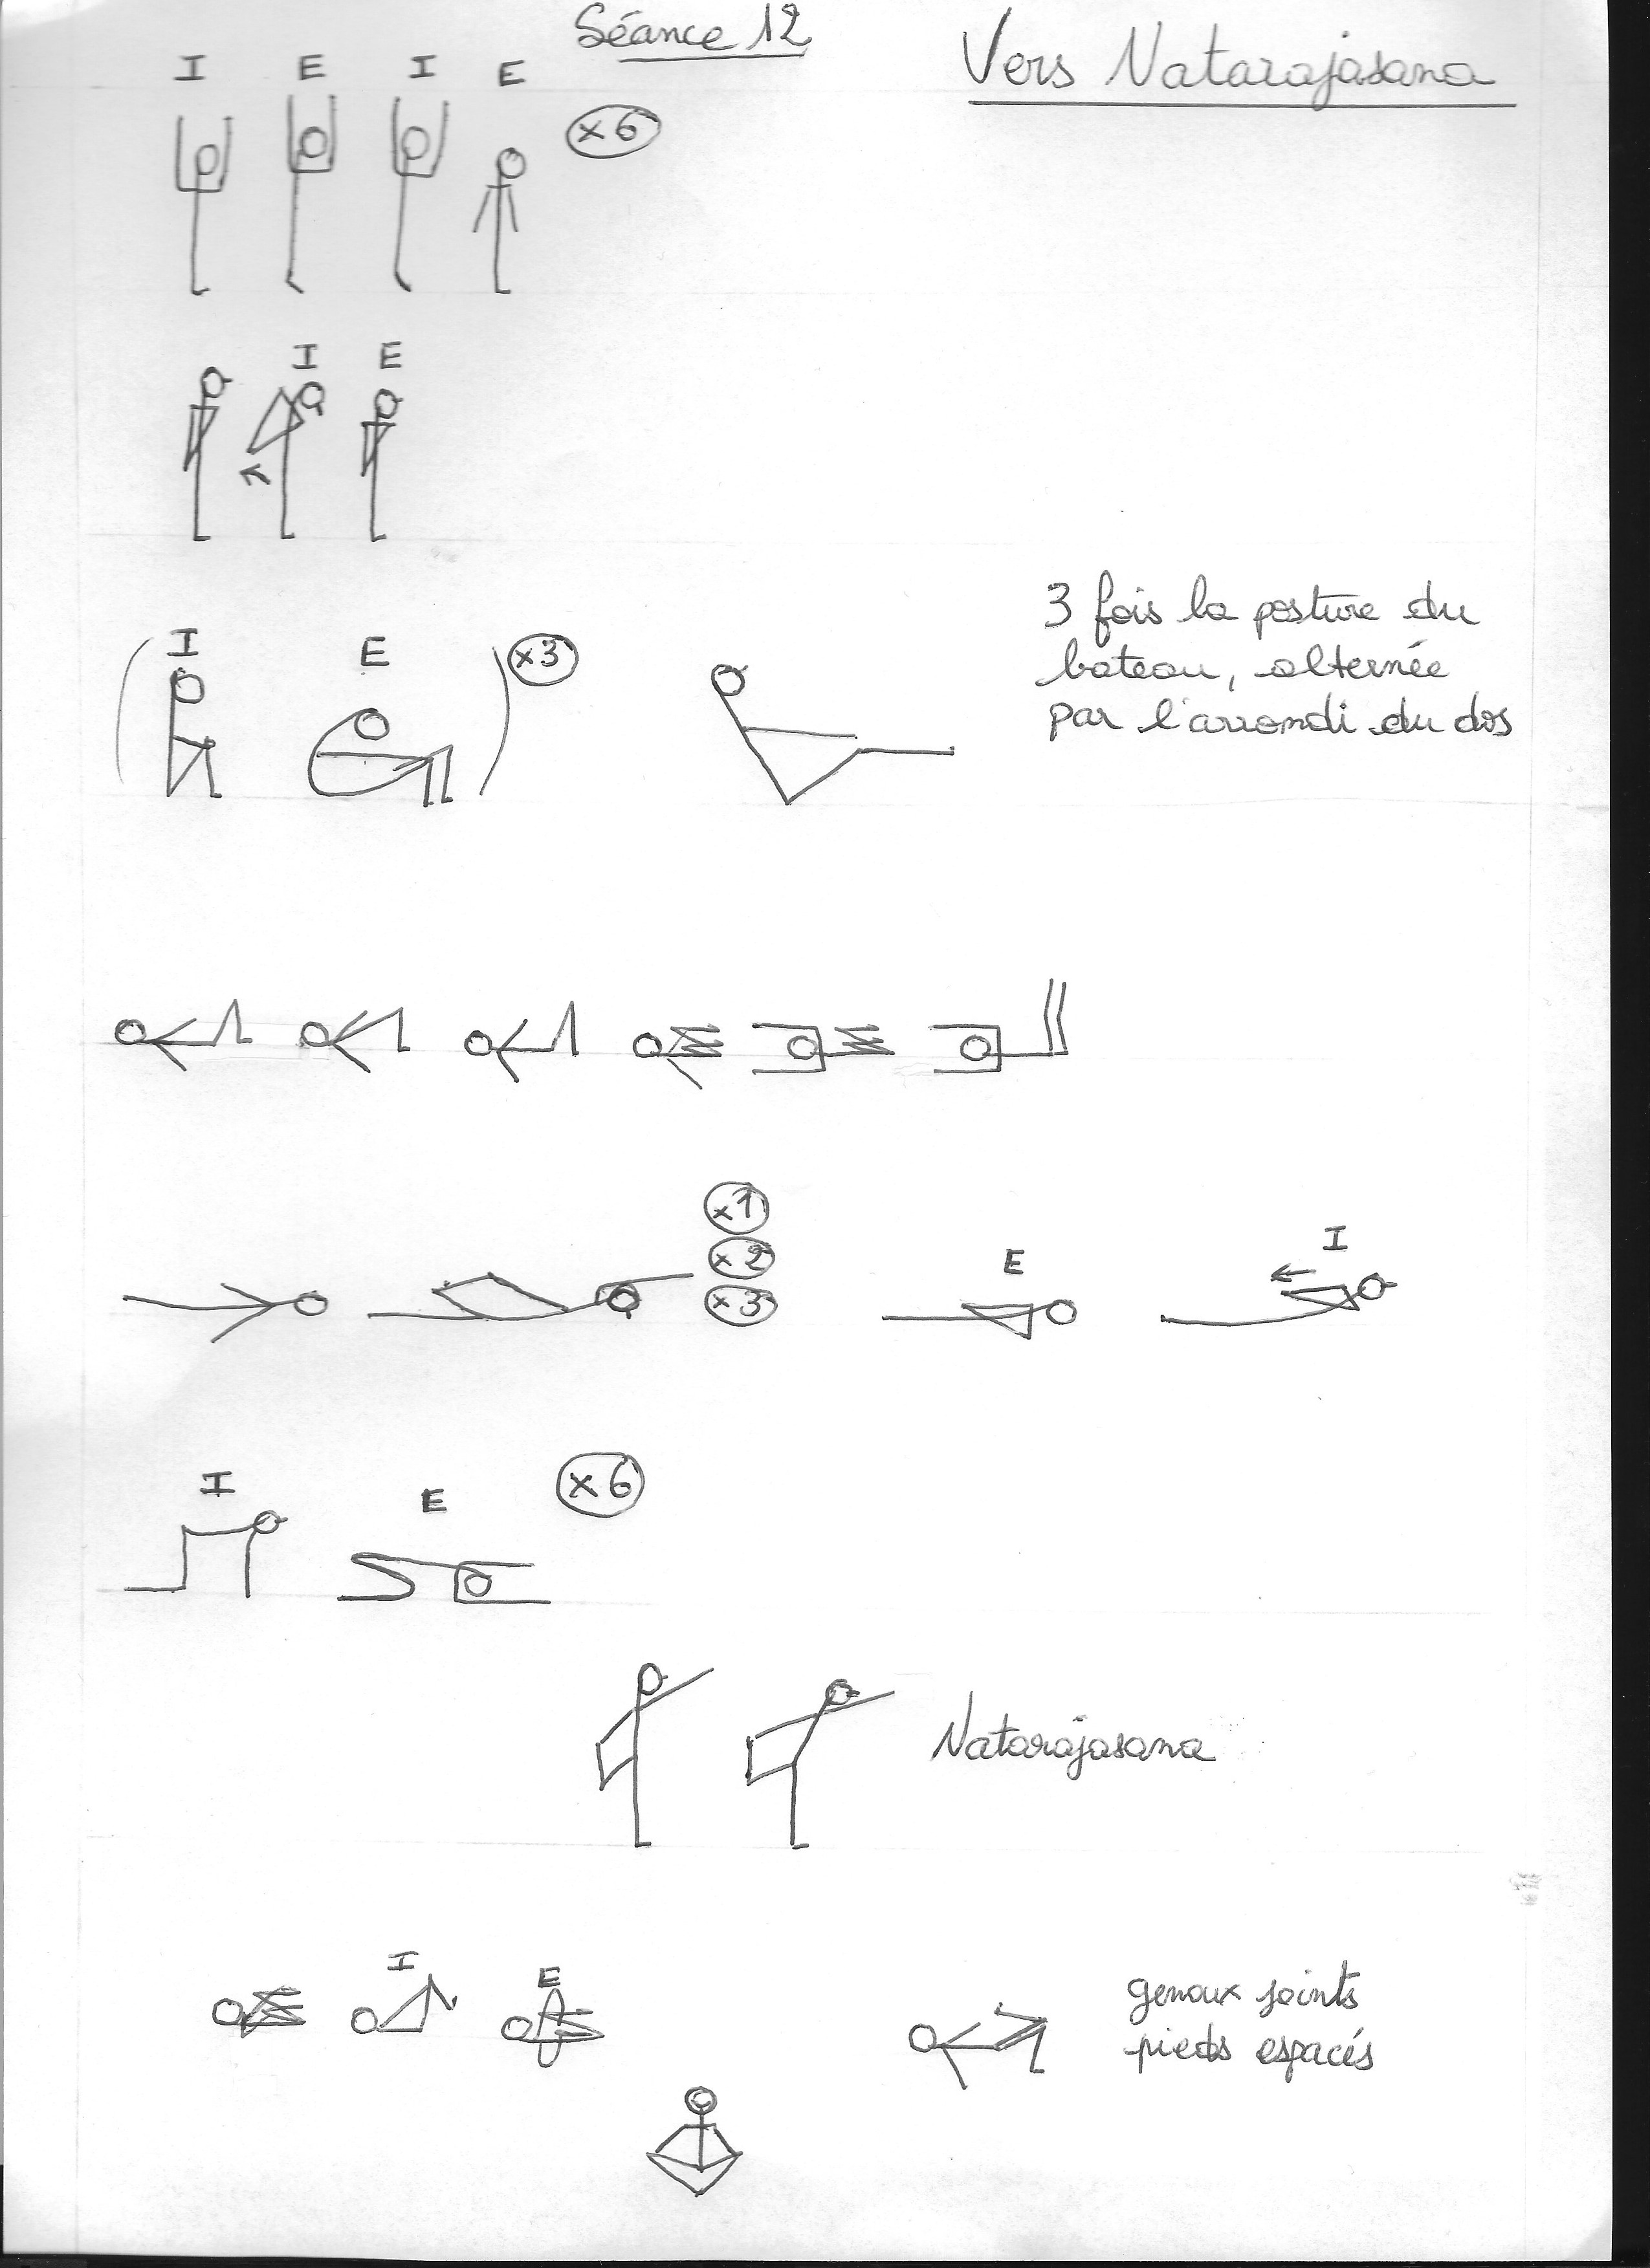 Séance 12
Vers Natarajasana
I E I E
x6
I E
I E x3
3 fois la posture du
bateau, alternée
par l'arrondi du dos
x1
x2
x3
E I
I E x6
Natarajasana
I E
genoux joints
pieds espacés